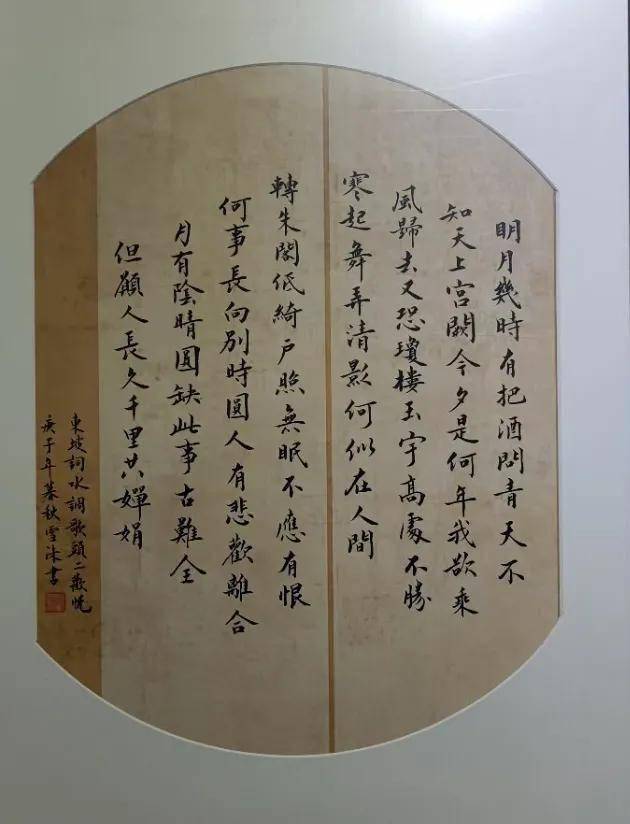 明月幾時有把酒問青天不
知天上宮闕今夕是何年我欲乘
風歸去又恐瓊樓玉宇高處不勝
寒起舞弄清影何似在人間
轉朱閣低綺户照無眠不應有恨
何事長向別時圓人有悲歡離合
月有陰晴圓缺此事古難全
但願人長久千里共嬋娟
東坡詞水調歌頭二
庚子年暮秋雪沐書